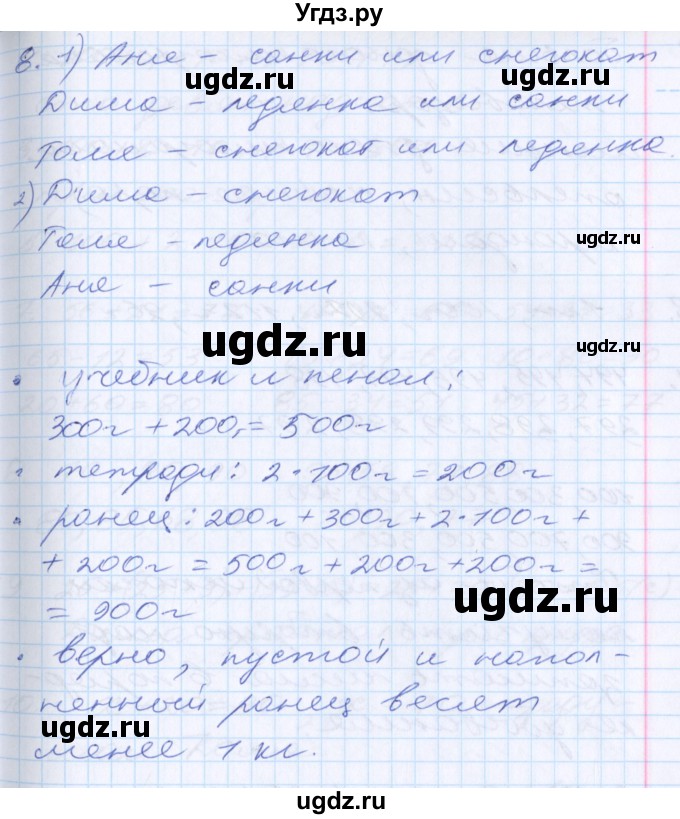 Угдз.ру
8. 1) Аня – санки или снегокат
ugdz.ru ugdz.ru
Дима – ледянка или санки
Толя – снегокат или ледянка.
2) Дима – снегокат
Толя – ледянка
ugdz.ru
Аня – санки
ugdz.ru ugdz.ru
• учебник и пенал:
300г + 200г = 500г
• тетради: 2·100г = 200г
• ранец: 200г + 300г + 2·100г +
+ 200г = 500г + 200г + 200г =
= 900г
ugdz.ru
• верно, пустой и напол-
ненный ранец весят
ugdz.ru
менее 1 кг.
ugdz.ru